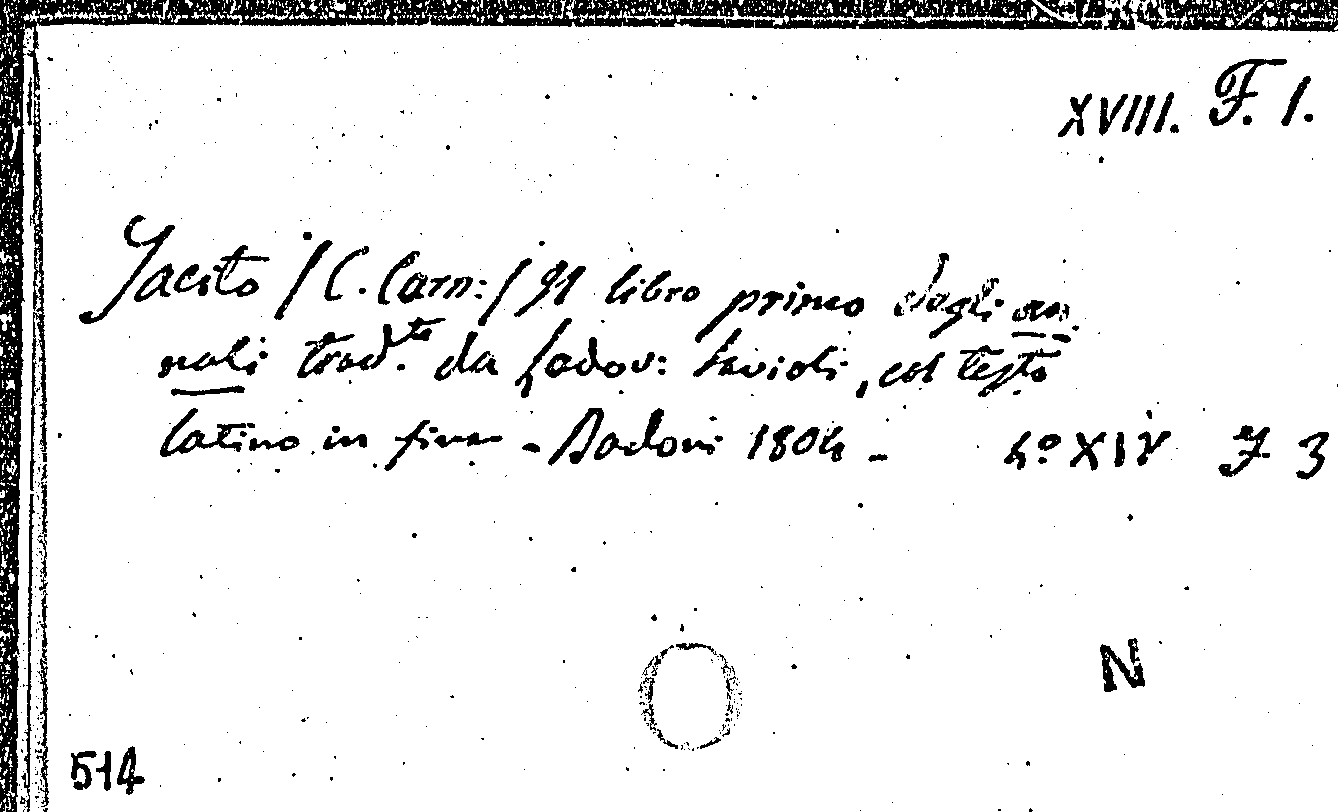 XVIII. F. 1.
Tacito / C. Corn: / Il libro primo degli an
nali trad.te da Lodov: Savioli, col testo
latino in fine - Bodoni 1804 -
4º XIV F 3
N
514